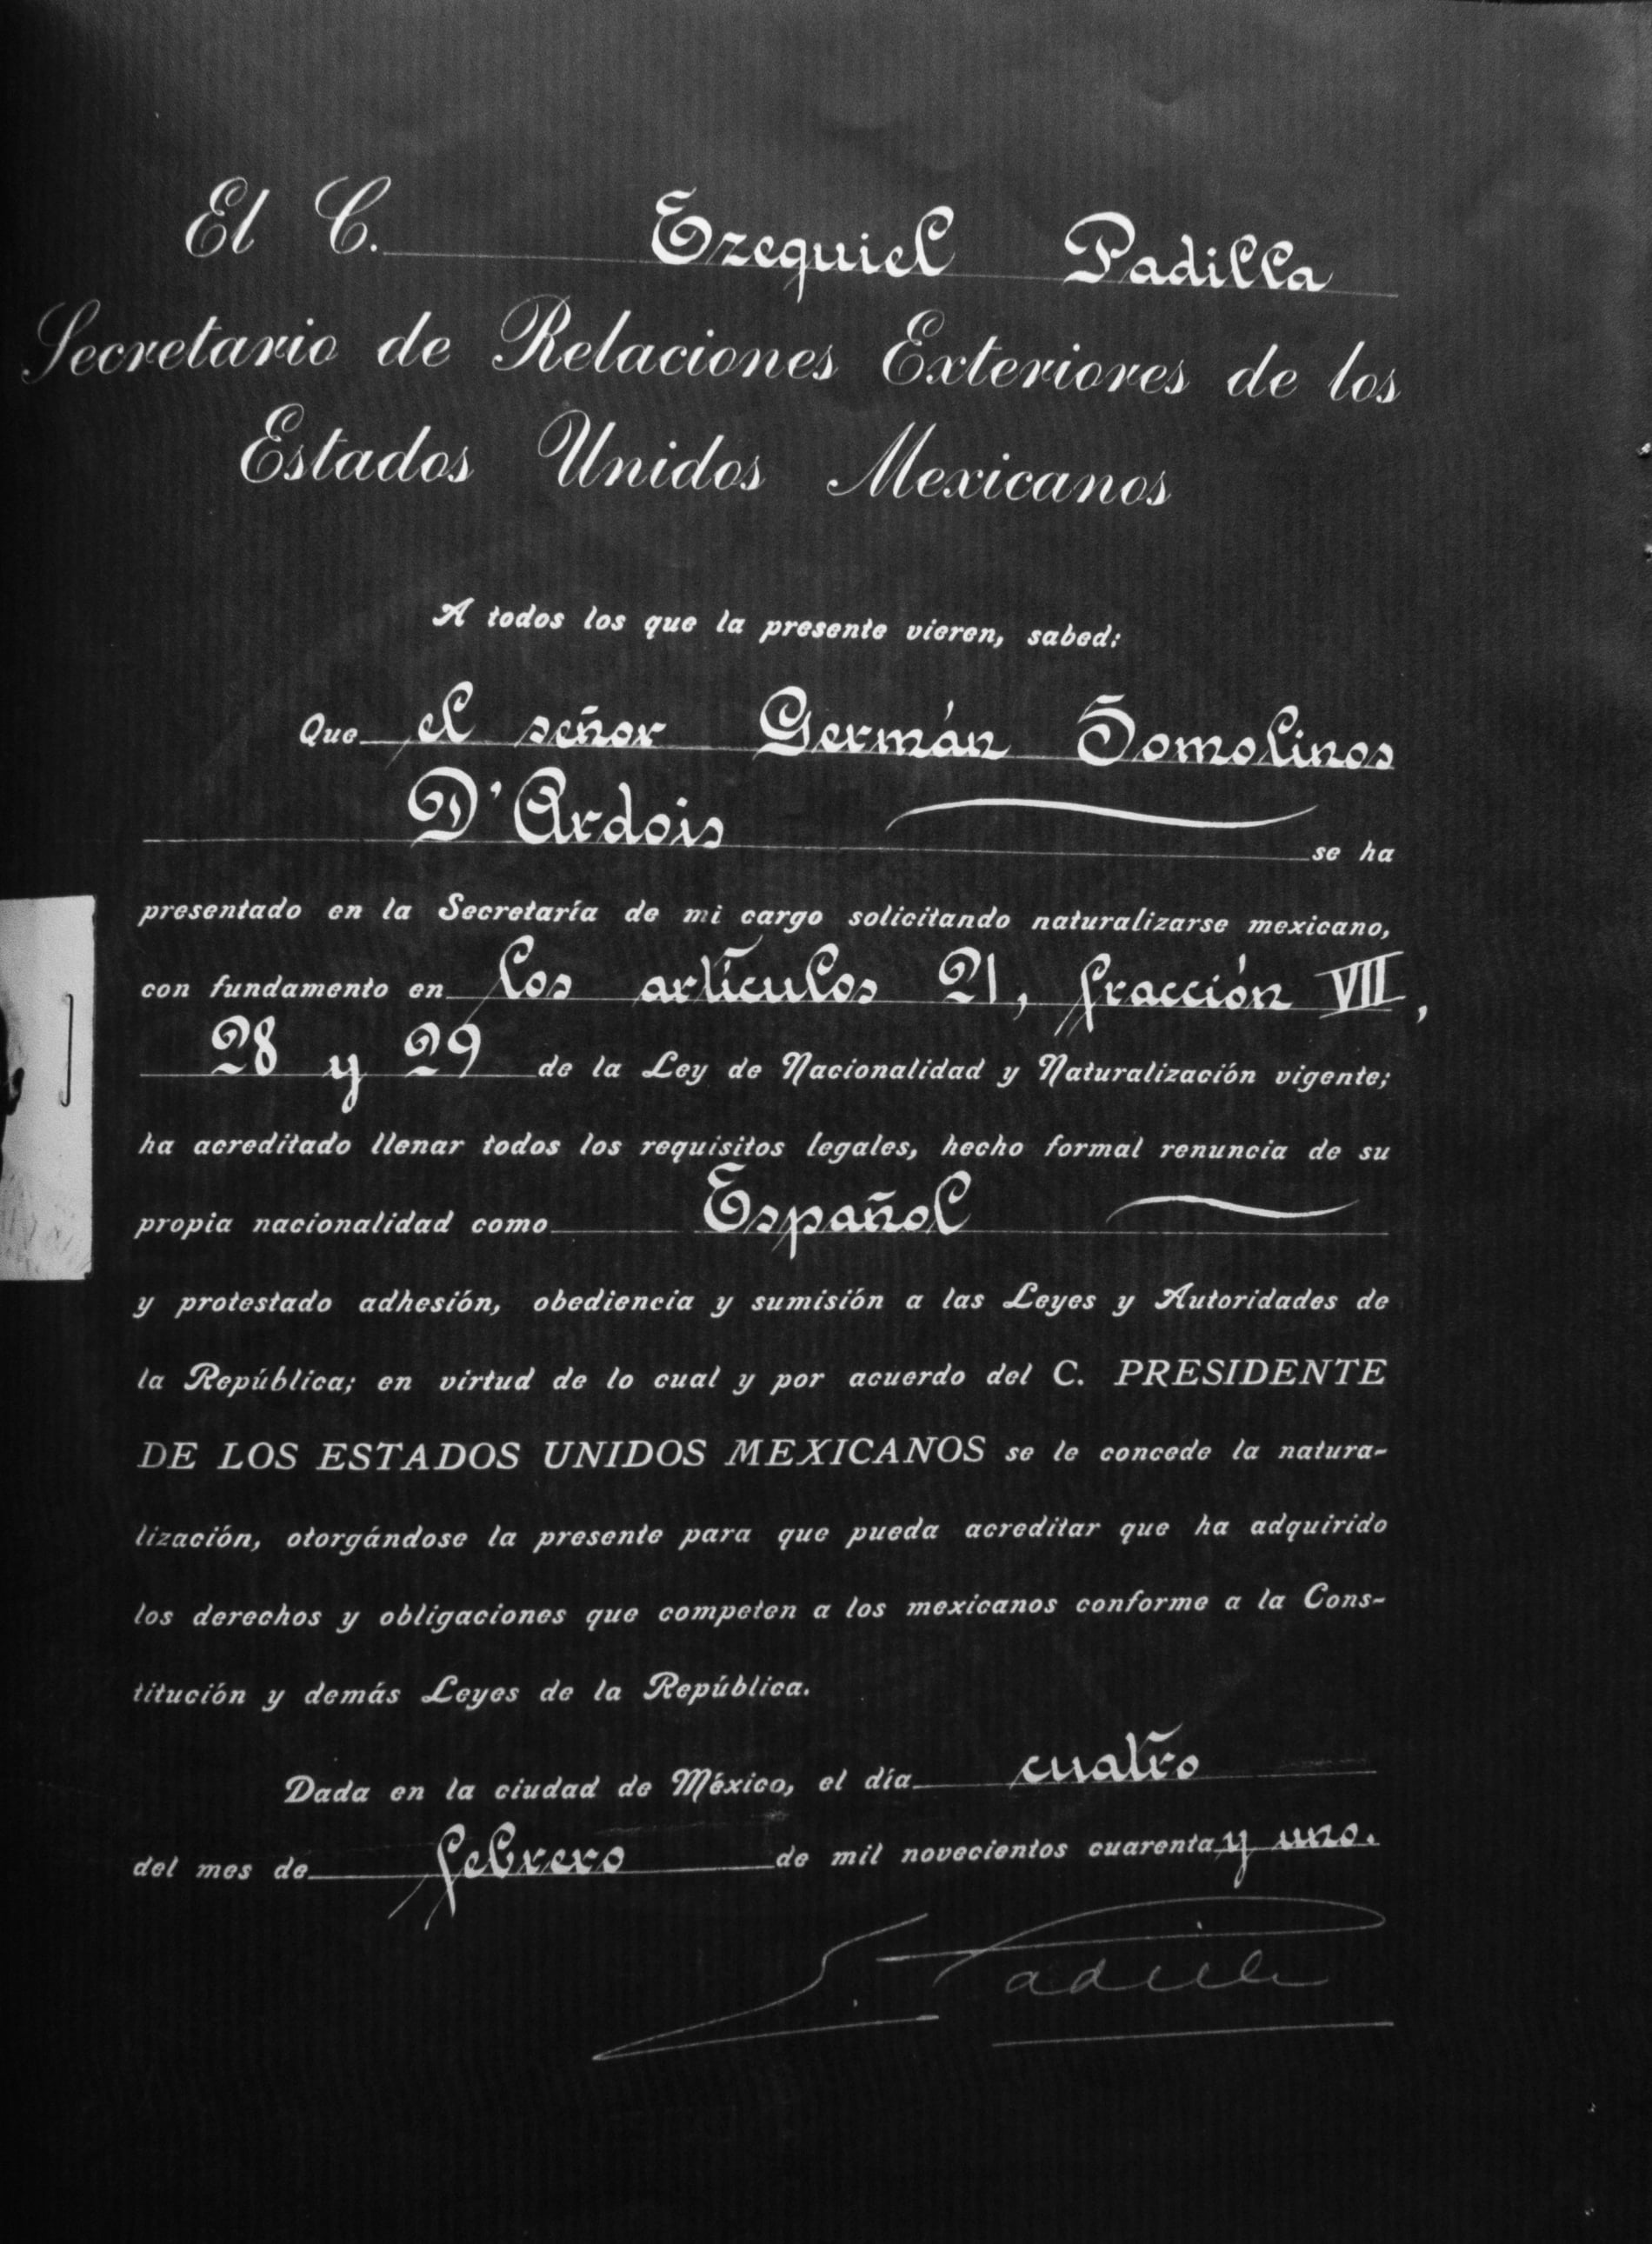 El C. Ezequiel Padilla
Secretario de Relaciones Exteriores de los
Estados Unidos Mexicanos
A todos los que la presente vieren, sabed:
Que el señor Germán Somolinos
D'Ardois se ha
presentado en la Secretaría de mi cargo solicitando naturalizarse mexicano,
con fundamento en los artículos 21, fracción VII,
28 y 29 de la Ley de Nacionalidad y Naturalización vigente;
ha acreditado llenar todos los requisitos legales, hecho formal renuncia de su
propia nacionalidad como Español
y protestado adhesión, obediencia y sumisión a las Leyes y Autoridades de
la República; en virtud de lo cual y por acuerdo del C. PRESIDENTE
DE LOS ESTADOS UNIDOS MEXICANOS se le concede la natura-
lización, otorgándose la presente para que pueda acreditar que ha adquirido
los derechos y obligaciones que competen a los mexicanos conforme a la Cons-
titución y demás Leyes de la República.
Dada en la ciudad de México, el día cuatro
del mes de febrero de mil novecientos cuarenta y uno.
E. Padilla